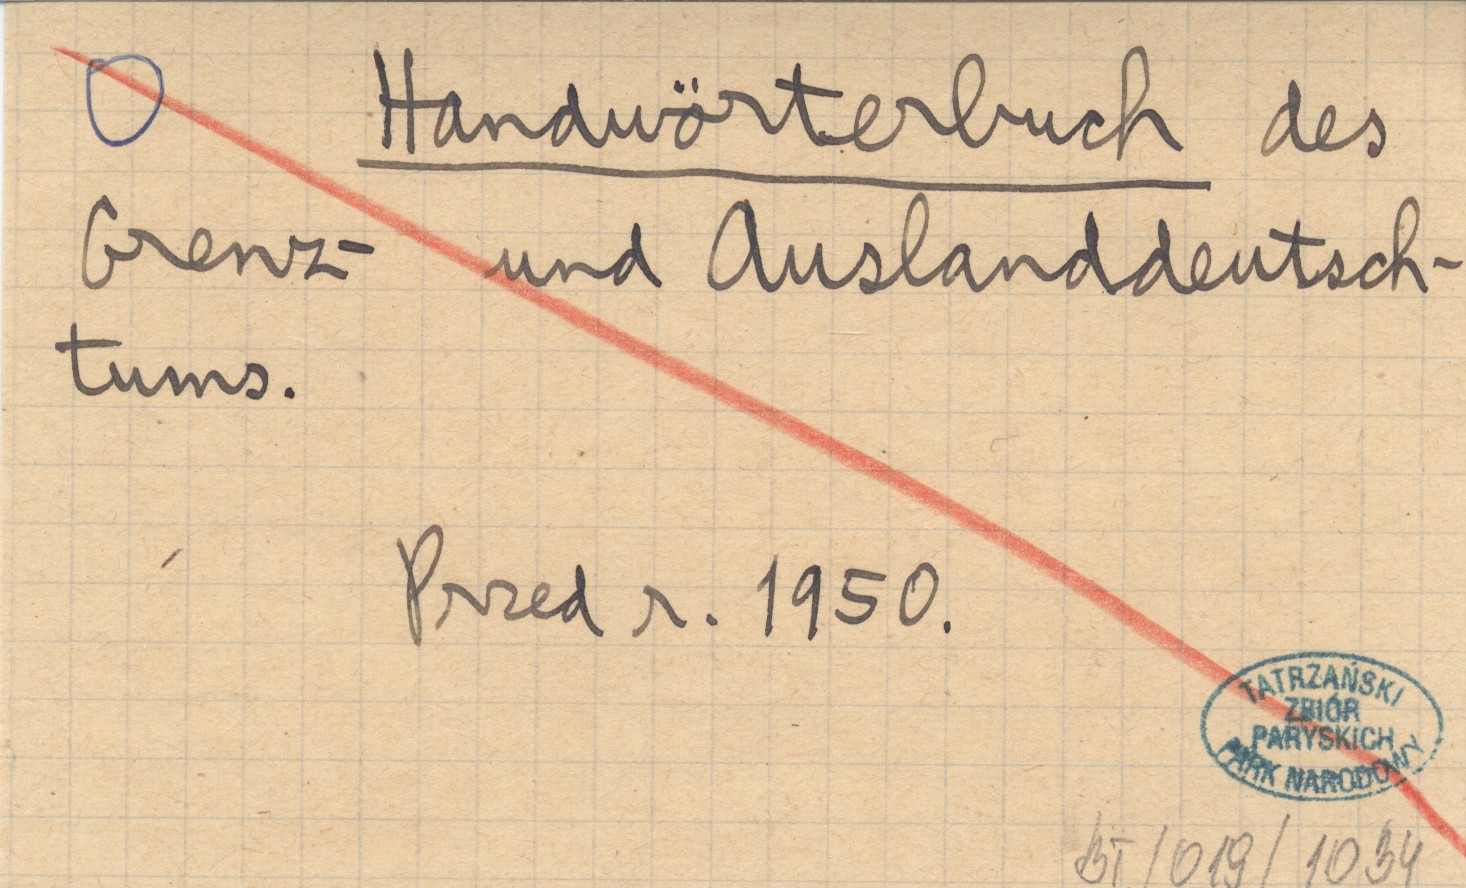 Handwörterbuch des
Grenz- und Auslanddeutsch-
tums.
Przed r. 1950.
TATRZAŃSKI
ZBIÓR
PARYSKICH
PARK NARODOWY
BT/019/1034